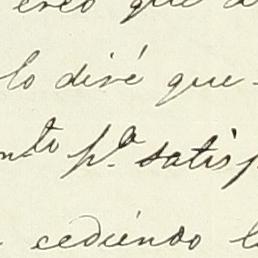 creo que a
lo diré que
nto pa satisf
cediendo l